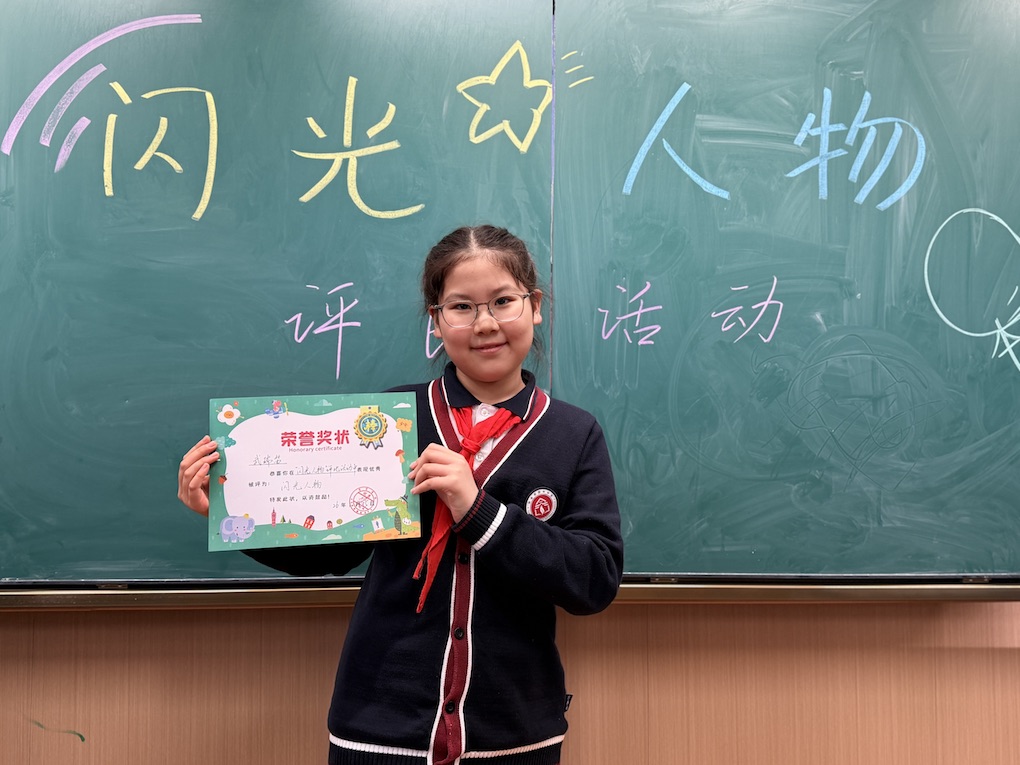 闪光人物
评 活动
荣誉奖状
Honorary certificate
恭喜你在"闪光人物"评比活动中表现优秀
被评为：闪光人物
特发此状，以资鼓励！